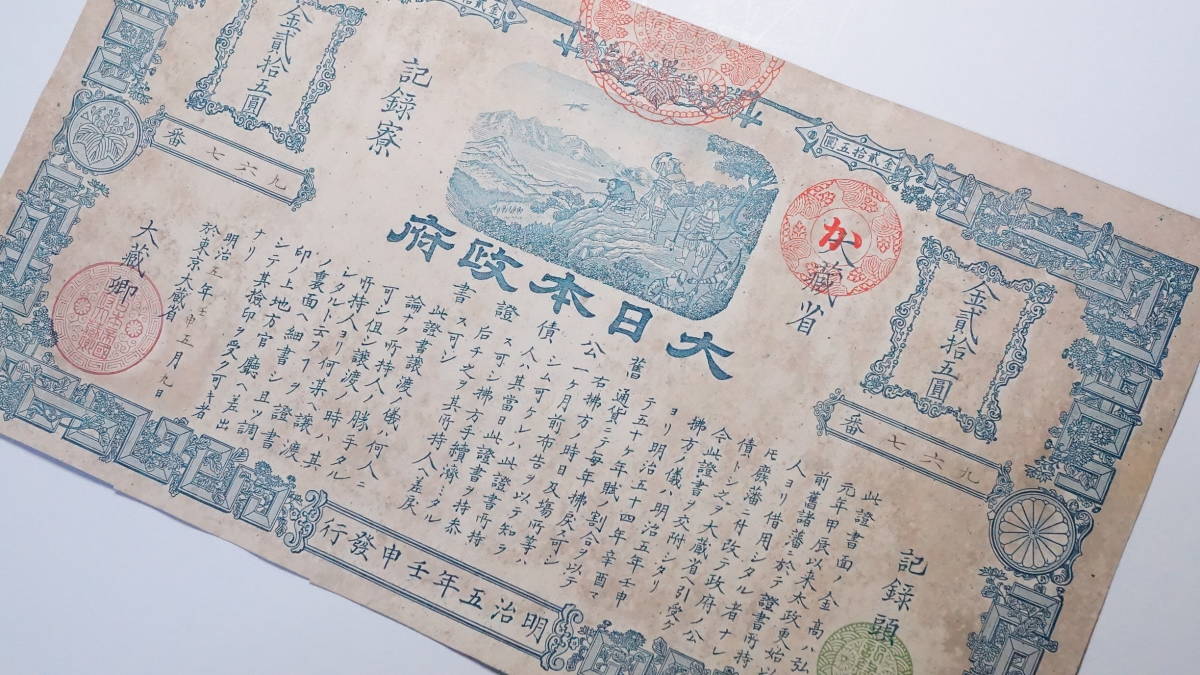 金貳拾五圓
金貳拾五圓
大日本政府
舊公債證書
か
大藏省
金貳拾五圓
九六七番
記錄頭
此證書面ノ金高ハ弘
元年甲辰以来太政更始以
前舊諸藩ニ於テ證書所持
人ヨリ借用シタル者ナレ
モ廢藩ニ付改テ政府ノ公
債トシ之ヲ大藏省ヘ引受ケ
今此證書ヲ交附シタリ
拂方ノ儀ハ明治五年壬申
ヨリ明治五十四年辛酉マ
テ五十ケ年賦ノ割合ヲ以テ
通貨ニテ毎年拂戻ス可シ
右拂方ノ時日及場所等ハ
一ケ月前布告ヲ以テ知ラ
シム可ケレハ此證書所持
人ハ其當日此證書ヲ持参
ス可シ拂方手續濟タル
后チ之ヲ其所持人ヘ差戻
ス可シ
此證書讓渡ノ儀ハ何人ニ
論ナク所持人ノ勝手タル
可シ但シ讓渡ノ時ハ其
所持人ヨリ何某ヘ讓渡シ
タルト云フヿヲ證書
ノ裏面ヘ細書シ且ツ調
印ノ上地方官廳ヘ差出
シテ其檢印ヲ受ク可キ者
ナリ
明治五年壬申五月九日
於東京大藏省
大藏卿
記錄寮
金貳拾五圓
九六七番
明治五年壬申發行